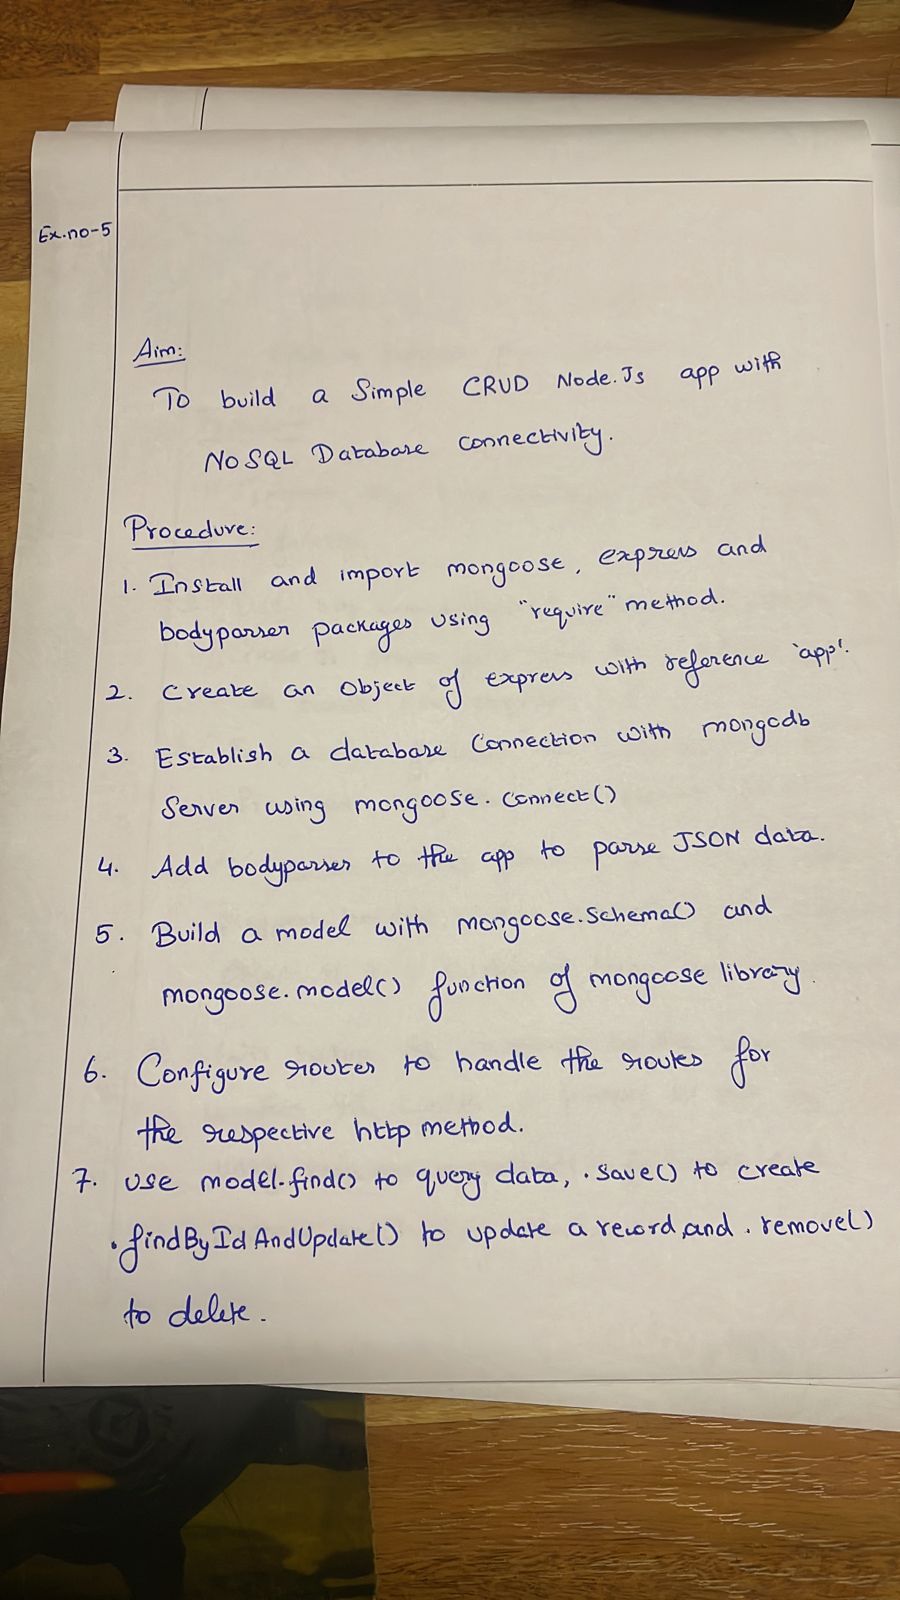 Ex.no-5
Aim:
To build a Simple CRUD Node.Js app with
NO SQL Database connectivity.
Procedure:
1. Install and import mongoose, express and
bodyparser packages using "require" method.
2. Create an object of express with reference 'app'.
3. Establish a database connection with mongodb
Server using mongoose.connect()
4. Add bodyparser to the app to parse JSON data.
5. Build a model with mongoose.Schema() and
mongoose.model() function of mongoose library.
6. Configure router to handle the routes for
the respective http method.
7. Use model.find() to query data, .save() to create
.findByIdAndUpdate() to update a record, and .remove()
to delete.